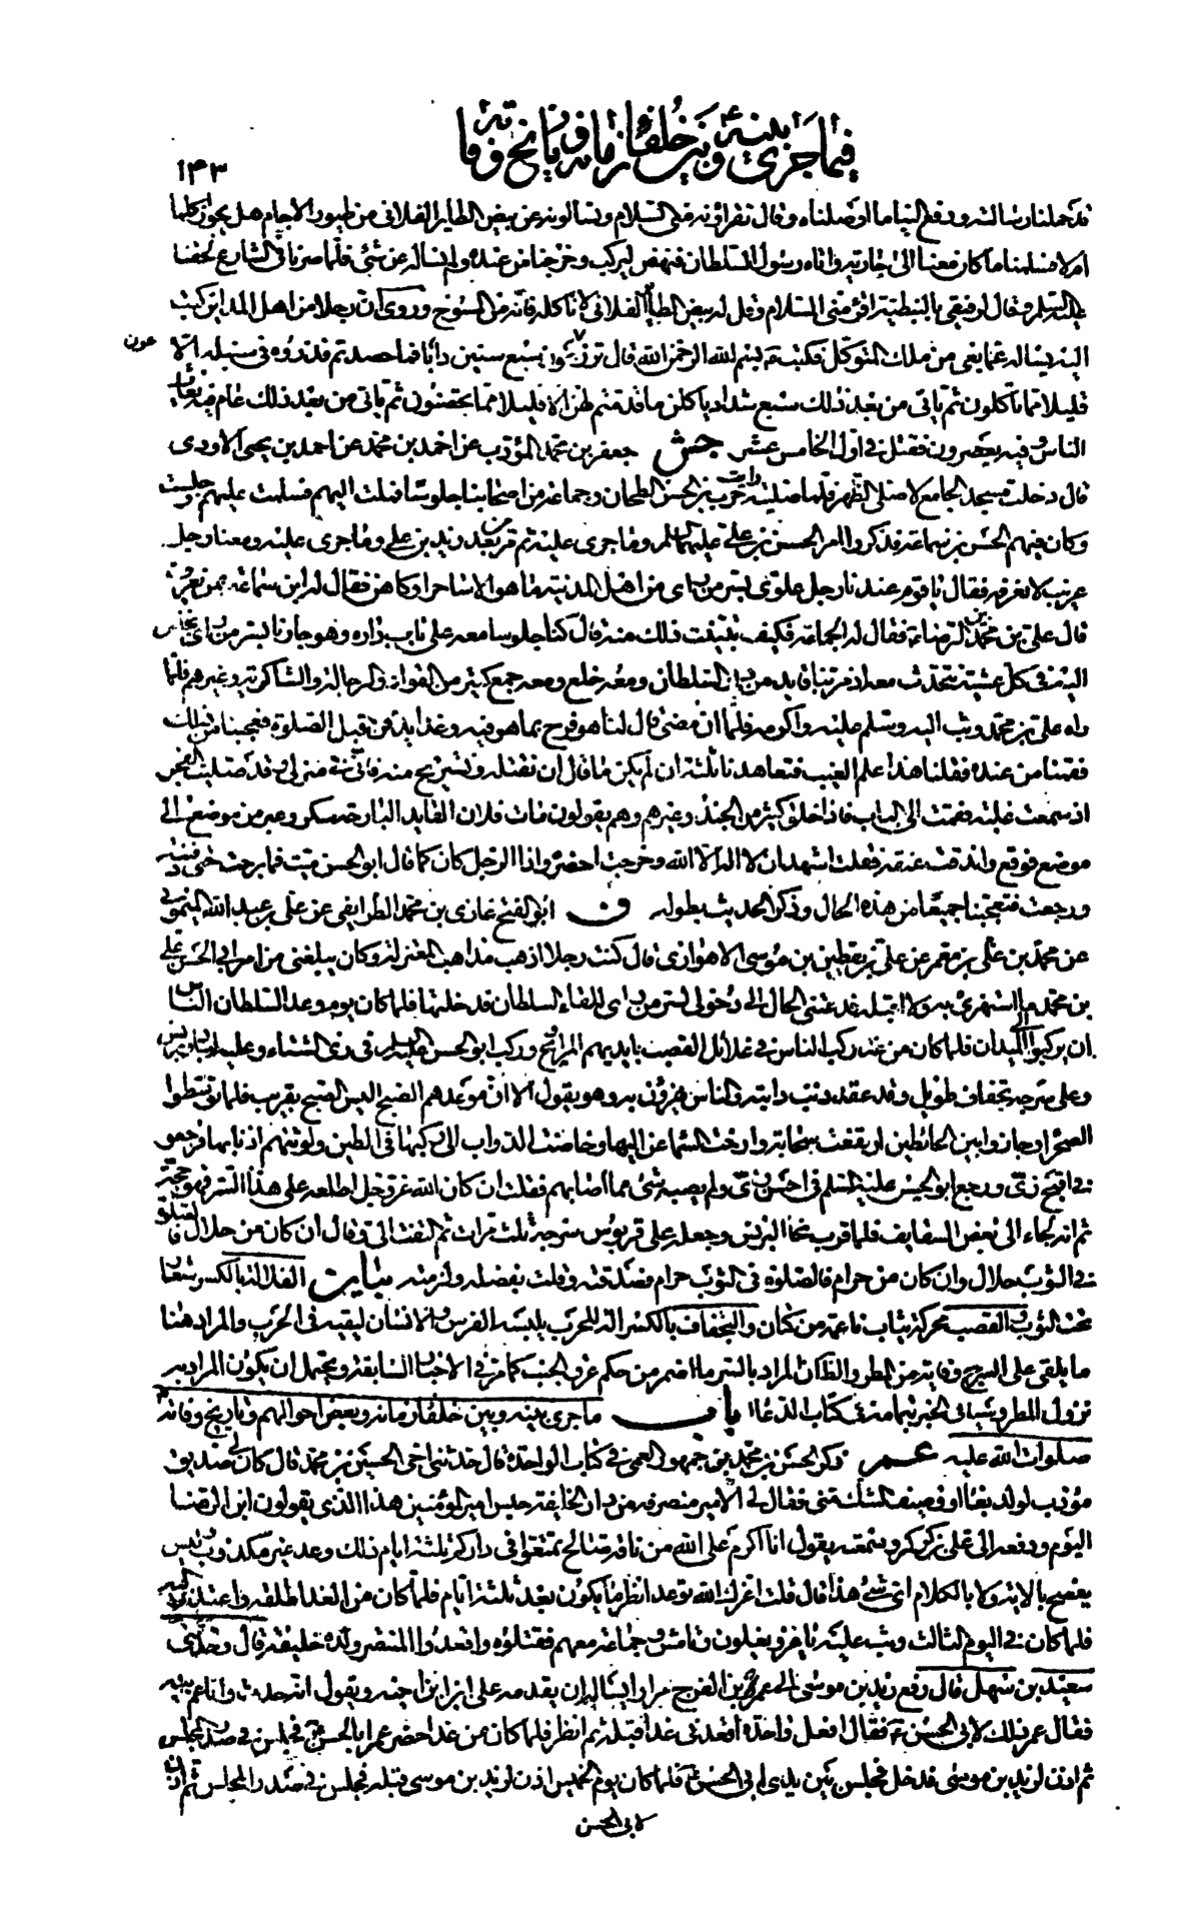 فيما جرى بينه و بين خلفاء زمانه و تاريخ وفاته
١٤٣
قد حملنا رسالته ودفع الينا ما اوصلناه وقال تقرؤنه منى السلام وتسالونه عن بيض الطاير الفلانى من طيور الاجام هل يجوز اكلها
ام لا فسلمنا ما كان معنا الى جاريته واتاه رسول السلطان فنهض ليركب وخرجنا من عنده ولم نساله عن شئ فلما صرنا فى الشارع لحقنا
عليه السلم وقال لرفيقى بالنبطية اقرئه منى السلام وقل له بيض الطاير الفلانى لا تاكله فانه من المسوخ وروى ان رجلا من اهل المداين كتب
اليه يساله عما بقى من ملك المتوكل فكتب ع بسم الله الرحمن الرحيم قال تزرعون سبع سنين دابا فما حصدتم فذروه فى سنبله الا
قليلا مما تاكلون ثم ياتى من بعد ذلك سبع شداد ياكلن ما قدمتم لهن الا قليلا مما تحصنون ثم ياتى من بعد ذلك عام فيه يغاث
الناس وفيه يعصرون فقتل فى اول الخامس عشر جش جعفر بن محمد المؤدب عن احمد بن محمد عن احمد بن يحيى الاودى
قال دخلت مسجد الجامع لاصلى الظهر فلما صليته رايت حرب بن الحسن الطحان وجماعة من اصحابنا جلوسا فملت اليهم فسلمت عليهم وجلست
وكان فيهم الحسن بن سماعة فذكروا امر الحسن بن على عليهما السلم وما جرى عليه ثم من بعد زيد بن على وما جرى عليه ومعنا رجل
غريب لا نعرفه فقال يا قوم عندنا رجل علوى بسر من راى من اهل المدينة ما هو الا ساحر او كاهن فقال له ابن سماعة بمن يعرف
قال على بن محمد بن الرضا ع فقال له الجماعة فكيف تبينت ذلك منه قال كنا جلوسا معه على باب داره وهو جارنا بسر من راى نجلس
اليه فى كل عشية نتحدث معه اذ مر بنا قايد من دار السلطان ومعه خلع ومعه جمع كثير من القواد والرجالة والشاكرية وغيرهم فلما
راه على بن محمد وثب اليه وسلم عليه واكرمه فلما ان مضى قال لنا هو فرح بما هو فيه وغدا يدفن قبل الصلوة فعجبنا من ذلك
فقمنا من عنده فقلنا هذا علم الغيب فتعاهدنا ثلثة ان لم يكن ما قال ان نقتله ونستريح منه فانى فى منزلى وقد صليت الفجر
اذ سمعت غلبة فقمت الى الباب فاذا خلق كثير من الجند وغيرهم وهم يقولون مات فلان القايد البارحة سكر وعبر من موضع الى
موضع فوقع واندقت عنقه فقلت اشهد ان لا اله الا الله وخرجت احضره واذا الرجل كان كما قال ابو الحسن ميت فما برحت حتى دفنته
ورجعت فتعجبنا جميعا من هذه الحال وذكر الحديث بطوله ف ابو الفتح غازى بن محمد الطرايفى عن على بن عبد الله الميمونى
عن محمد بن على بن معمر عن على بن يقطين بن موسى الاهوازى قال كنت رجلا اذهب مذاهب المعتزلة وكان يبلغنى من امر ابى الحسن على
بن محمد ما استهزئ به ولا اقبله فدعتنى الحال الى دخولى لسر من راى للقاء السلطان فدخلتها فلما كان يوم وعد السلطان الناس
ان يركبوا الى الميدان فلما كان من غد ركب الناس فى غلائل القصب بايديهم المراوح وركب ابو الحسن عليه السلم فى زى الشتاء وعليه لباد وبرنس
وعلى سرجه تجفاف طويل وقد عقد ذنب دابته والناس يهزؤن به وهو يقول الا ان موعدهم الصبح اليس الصبح بقريب فلما توسطوا
الصحراء وجازوا بين الحائطين ارتفعت سحابة وارخت السماء عزاليها وخاضت الدواب الى ركبها فى الطين ولوثتهم اذنابها فرجعوا
فى اقبح زى ورجع ابو الحسن عليه السلم فى احسن زى ولم يصبه شئ مما اصابهم فقلت ان كان الله عز وجل اطلعه على هذا السر فهو حجة
ثم انه لجاء الى بعض السقايف فلما قرب نحا البرنس وجعله على قربوس سرجه ثلث مرات ثم التفت الى وقال ان كان من حلال فالصلوة
فى الثوب حلال وان كان من حرام فالصلوة فى الثوب حرام فصدقته وقلت بفضله ولزمته بيان الغلالة بالكسر شعار
تحت الثوب والقصب محركة ثياب ناعمة من كتان والتجفاف بالكسر الة للحرب يلبسه الفرس والانسان ليقيه فى الحرب والمراد هنا
ما يلقى على السرج وقاية من المطر والظاهر ان المراد بالسر ما اضمر من حكم عرق الجنب كما مر فى الاخبار السابقة ويحتمل ان يكون المراد به
نزول المطر وسياتى الخبر بتمامه فى كتاب الدعاء باب ما جرى بينه وبين خلفاء زمانه وبعض احوالهم وتاريخ وفاته
صلوات الله عليه عم ذكر الحسن بن محمد بن جمهور العمى فى كتاب الواحدة قال حدثنى اخى الحسين بن محمد قال كان لى صديق
مؤدب لولد بغا او وصيف الشك منى فقال لى الامير منصرفه من دار الخليفة حبس امير المؤمنين هذا الذى يقولون ابن الرضا
اليوم ودفعه الى على بن كركر فسمعته يقول انا اكرم على الله من ناقة صالح تمتعوا فى داركم ثلثة ايام ذلك وعد غير مكذوب ليس
يفصح بالاية ولا بالكلام اى شئ هذا قال قلت اعزك الله توعد انظر ما يكون بعد ثلثة ايام فلما كان من الغد اطلقه واعتذر اليه
فلما كان فى اليوم الثالث وثب عليه ياغز ويغلون وتامش وجماعة معهم فقتلوه واقعدوا المنتصر ولده خليفة قال وحدثنى
سعيد بن سهل قال رفع زيد بن موسى الى عمر بن الفرج مرارا يساله ان يقدمه على ابن ابن اخيه ويقول انه حدث وانا عم ابيه
فقال عمر ذلك لابى الحسن ع فقال افعل واحدة اقعدنى غدا قبله ثم انظر فلما كان من غد احضر عمر ابا الحسن ع فجلس فى صدر المجلس
ثم اذن لزيد بن موسى فدخل فجلس بين يدى ابى الحسن ع فلما كان يوم الخميس اذن لزيد بن موسى قبله فجلس فى صدر المجلس ثم اذن
لابى الحسن